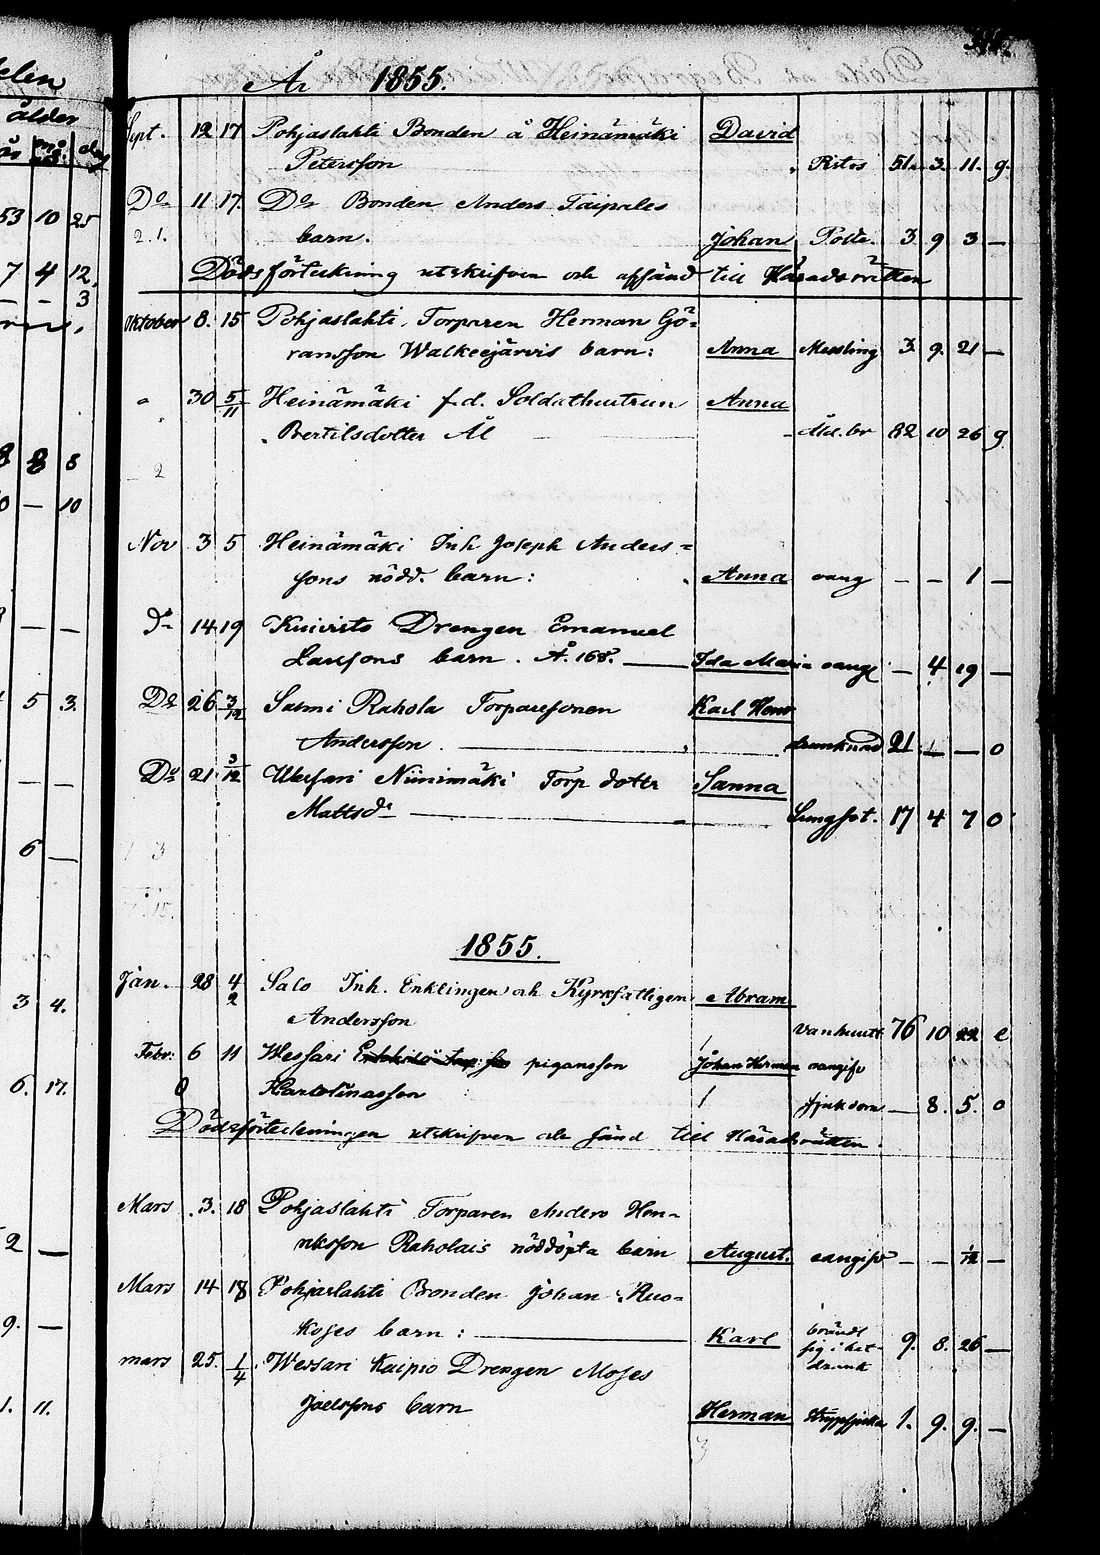 År 1855.
Sept. 12 17 Pohjaslahti Bonden å Heinämäki David
Petersson Rötos 51. 3. 11. g.
Do 11 17. Do Bonden Anders Taipales
2. 1. barn. Johan 3 9 3 —
Dödsförteckning utskrifven och afsänd till Häradsrätten
Oktober 8. 15 Pohjaslahti, Torparen Herman Gö-
ransson Walkeejärvis barn: Anna Messling 3 9. 21 —
30 5/11 Heinämäki f.d. Soldathustrun Anna
Bertilsdotter Ål Åld.br 82 10 26 g
2
Nov 3 5 Heinämäki Inh Joseph Anders-
sons nödd. barn: Anna oang — — 1 —
Do 14 19 Kuivisto Drengen Emanuel
Larssons barn. Å. 168. Ida Maria oangf — 4 19 —
Do 26 3/12 Salmi Rahola Torparesonen Karl Henr
Andersson. drunknad 21 — — o
Do 21 3/12 Wessari Niinimäki Torp dotter Sanna
Mattsdr Lungsot. 17 4 7 o
1855.
Jan. 28 4/2 Salo Inh. Enklingen och Kyrkfattigen Abram
Andersson 76 10 22 e
Febr: 6 11 Wessari pigansson Johan Herman oangifv
Karolinasson sjukdom — 8. 5. o
Dödsförteckningen utskrifven och sänd till Häradsrätten.
Mars 3. 18 Pohjaslahti Torparen Anders Hen-
riksson Raholais nöddöpta barn August. oangifv — — 1/12 —
Mars 14 18 Pohjaslahti Bonden Johan Ruo-
koses barn: Karl bränt sig i het drank 9. 8. 26 —
mars 25. 1/4 Wessari Kaipio Drengen Moses
Joelssons barn Herman strypsjuka 1. 9. 9. —
elen
ålder
år må. dag
53 10 25
7 4 12.
— — 3
8 8 8
0 — 10
— —
5 3.
—
6 —
3 4.
6. 17.
2 —
9. —
1. 11.